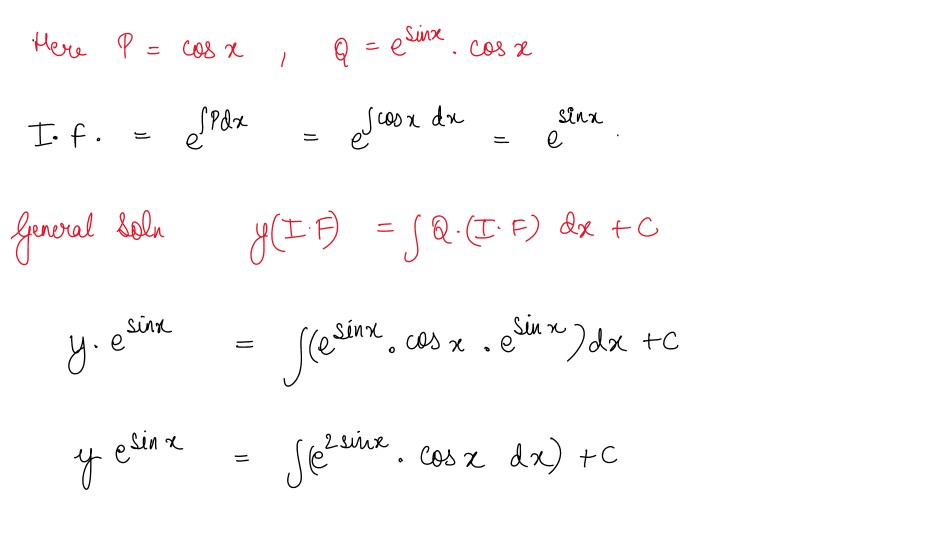 Here P = cos x , Q = e^{sinx} . cos x
I.f. = e^{∫Pdx} = e^{∫cos x dx} = e^{sinx} .
General Soln y(I.F) = ∫Q.(I.F) dx + C
y. e^{sinx} = ∫(e^{sinx} . cos x . e^{sin x}) dx + C
y e^{sin x} = ∫(e^{2sinx} . cos x dx) + C